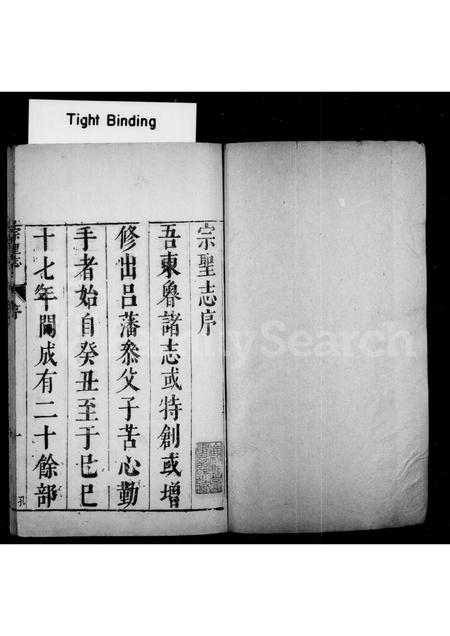 Tight Binding
宗聖志序
吾東魯諸志或特創或增
修出呂藩叅父子苦心勤
手者始自癸丑至于巳巳
十七年間成有二十餘部
宗聖志
序
一
孔
FamilySearch